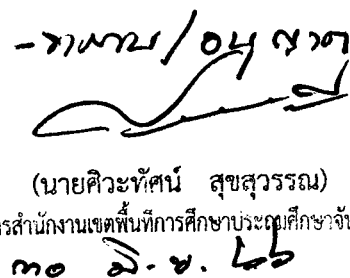 - ทราบ / อนุญาต
(นายศิวะทัศน์ สุขสุวรรณ)
รสำนักงานเขตพื้นที่การศึกษาประถมศึกษาจัน
๓๐ มิ.ย. ๖๖